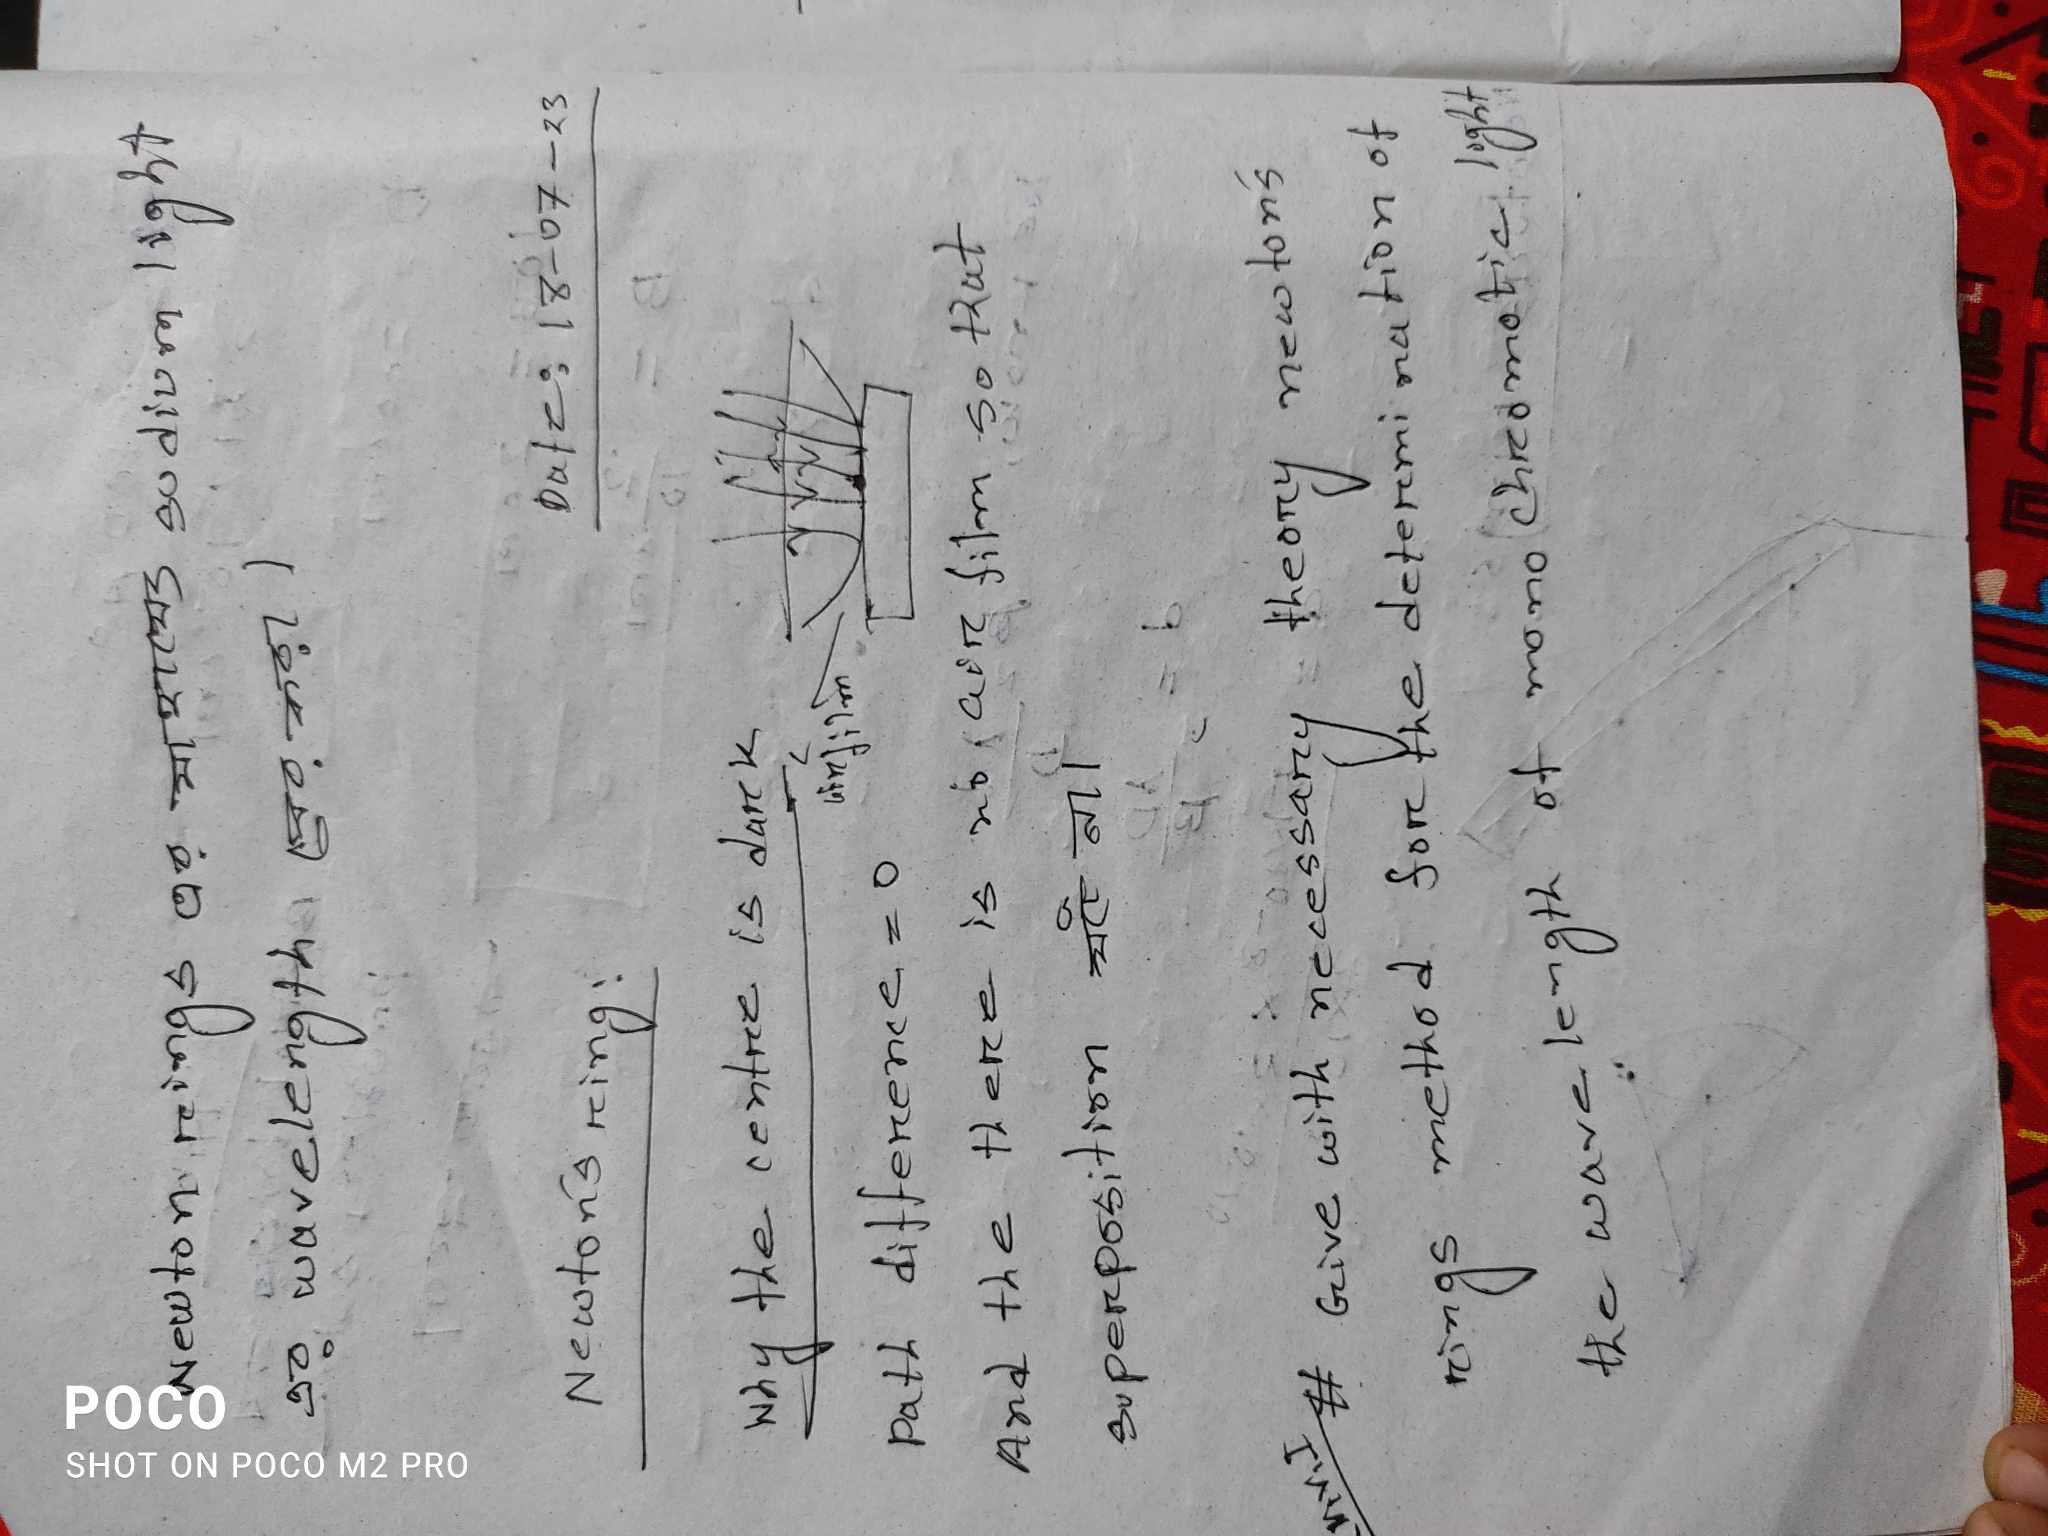 POCO
SHOT ON POCO M2 PRO
Newton rings এর সাহায্যে sodium light
এর wavelength বের করা।
Date: 18-07-23
Newton's ring:
Why the centre is dark
air film
Path difference = 0
And the there is no air film so that
superposition ঘটে না।
V.V.I # Give with necessary theory newton's
rings method for the determination of
the wave length of mono chromotic light